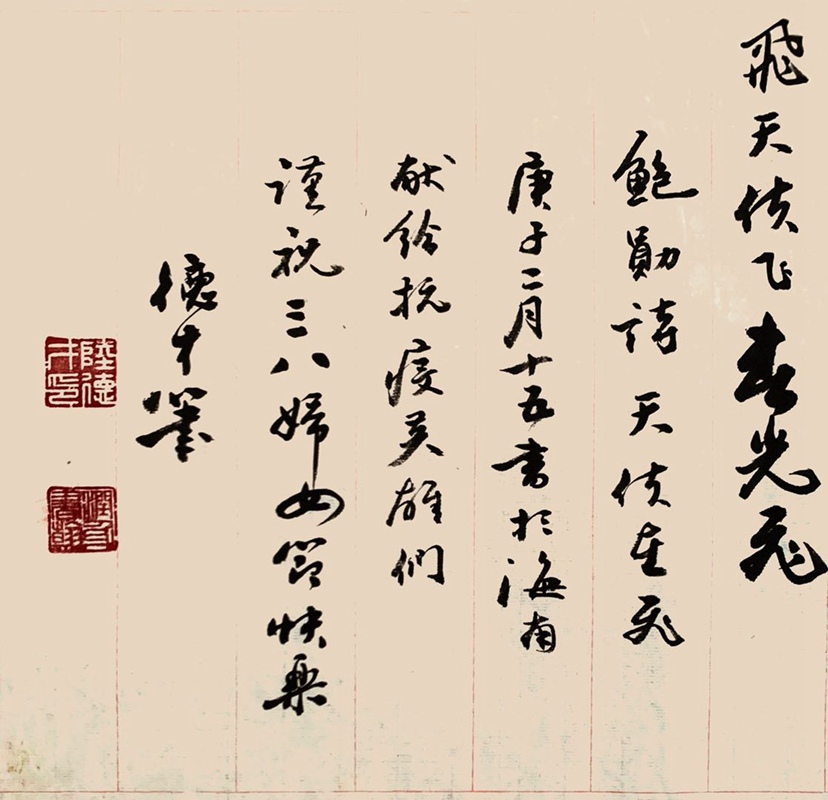 飛天使飞春光飛
鮑勛詩 天使在飛
庚子二月十五書於海南
献给抗疫英雄們
谨祝三八婦女節快樂
德才
陸德才印